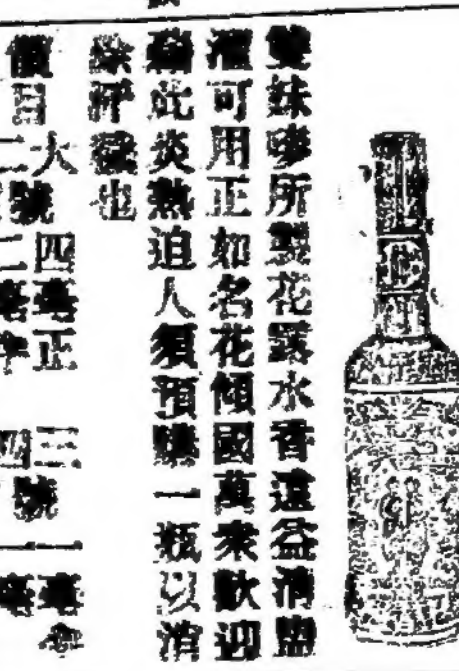 雙妹嚜所製花露水香遠益清盥
濯可用正如名花傾國萬衆歡迎
當此炎熱迫人須預購一瓶以消
除汗穢也
價目 大號四毫正 三號一毫
二號二毫半 四號一毫